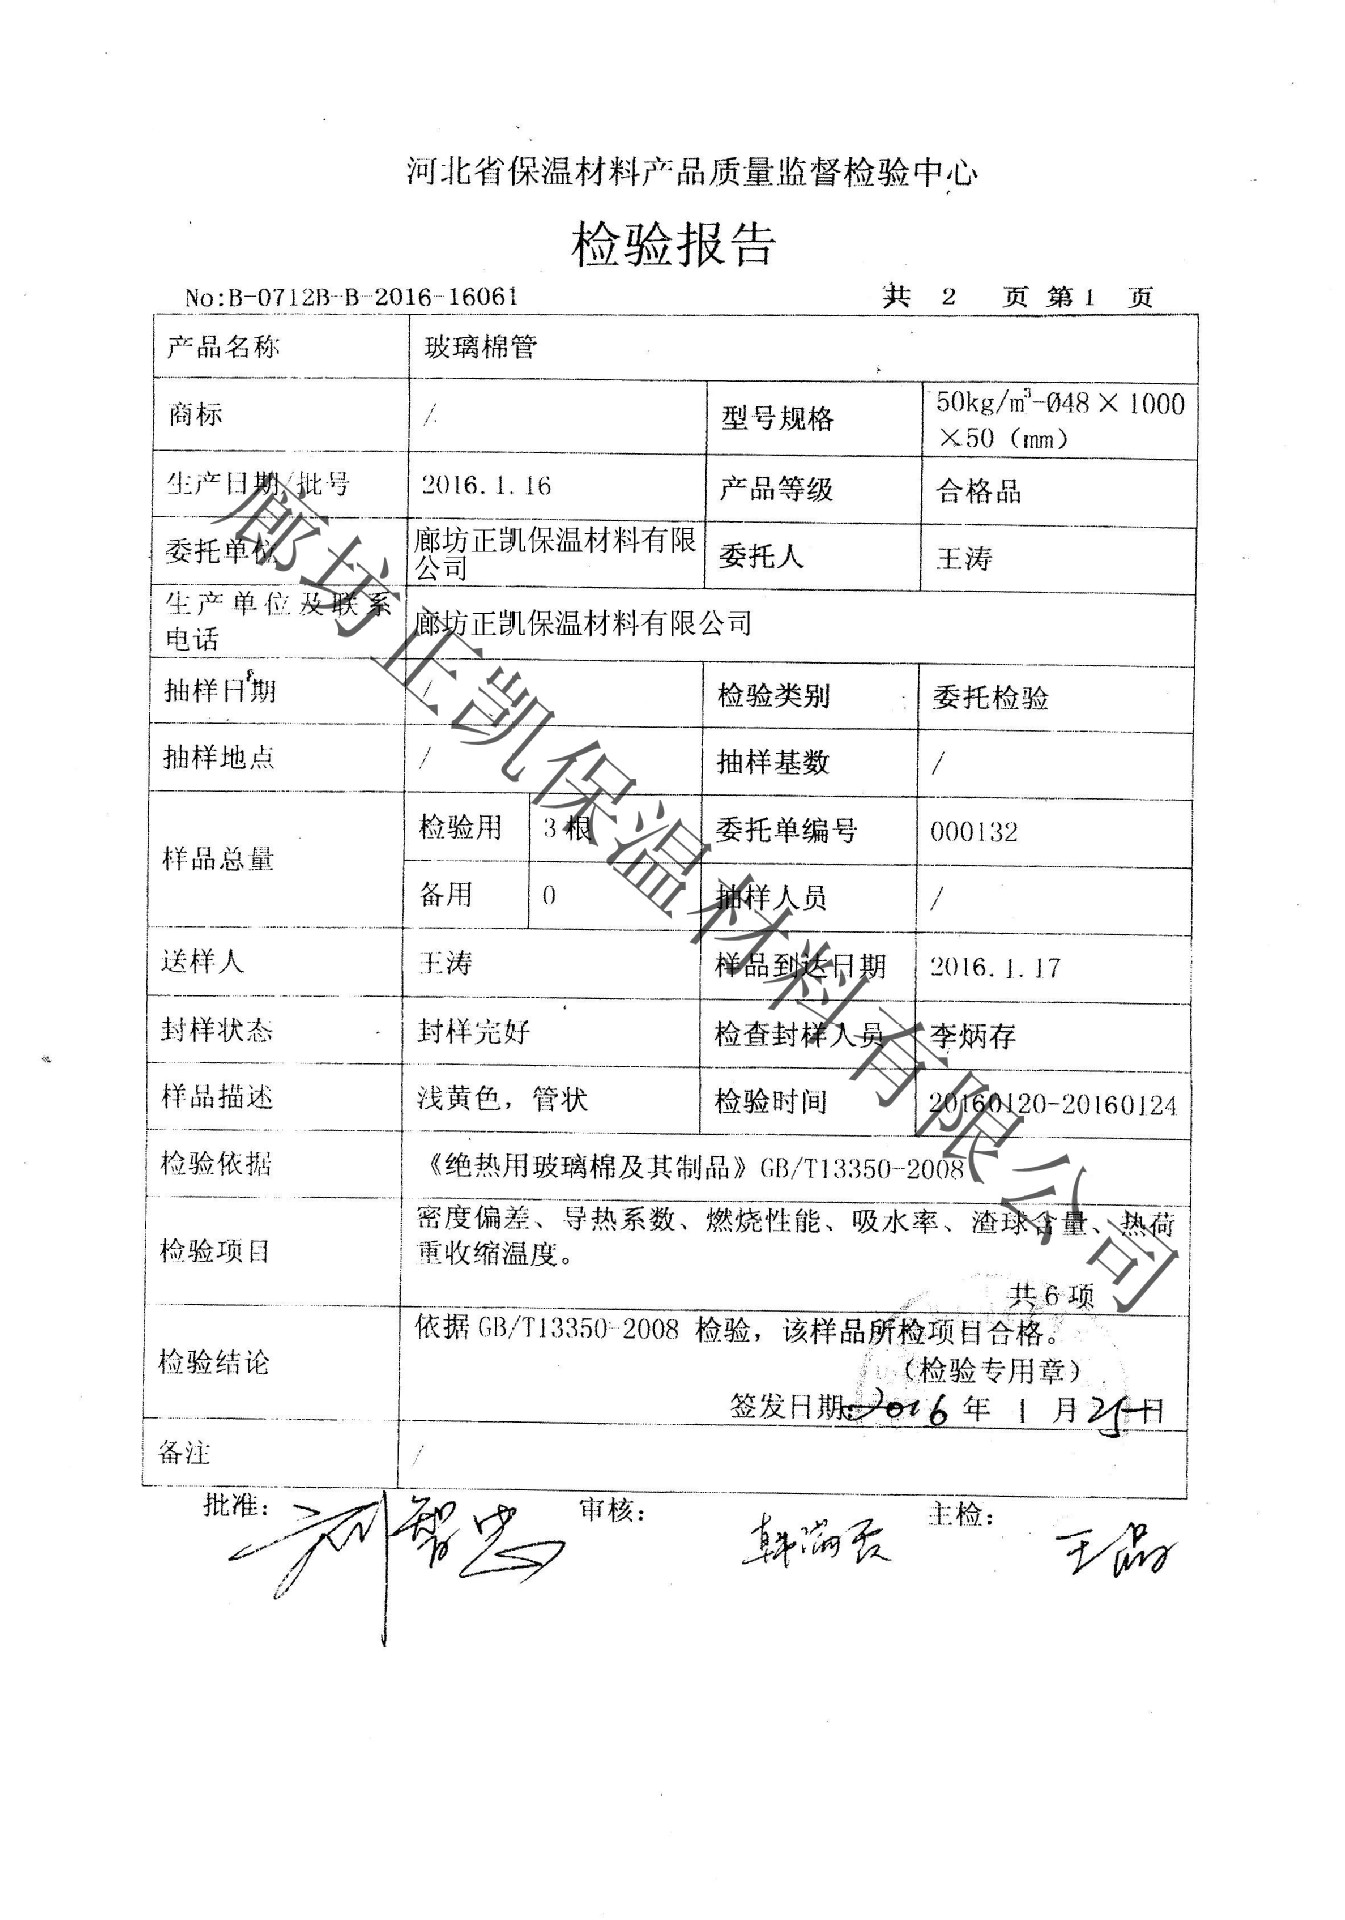 河北省保温材料产品质量监督检验中心
检验报告
No:B-0712B-B-2016-16061 共 2 页 第 1 页
产品名称 玻璃棉管
商标 / 型号规格 50kg/m³-Ø48×1000
×50（mm）
生产日期/批号 2016.1.16 产品等级 合格品
委托单位 廊坊正凯保温材料有限
公司 委托人 王涛
生产单位及联系
电话 廊坊正凯保温材料有限公司
抽样日期 / 检验类别 委托检验
抽样地点 / 抽样基数 /
样品总量 检验用 3根 委托单编号 000132
备用 0 抽样人员 /
送样人 王涛 样品到达日期 2016.1.17
封样状态 封样完好 检查封样人员 李炳存
样品描述 浅黄色，管状 检验时间 20160120-20160124
检验依据 《绝热用玻璃棉及其制品》GB/T13350-2008
检验项目 密度偏差、导热系数、燃烧性能、吸水率、渣球含量、热荷
重收缩温度。
共6项
检验结论 依据GB/T13350-2008 检验，该样品所检项目合格。
（检验专用章）
签发日期:2016年1月25日
备注 /
批准： 刘智忠 审核： 主检： 王晶
廊坊正凯保温材料有限公司